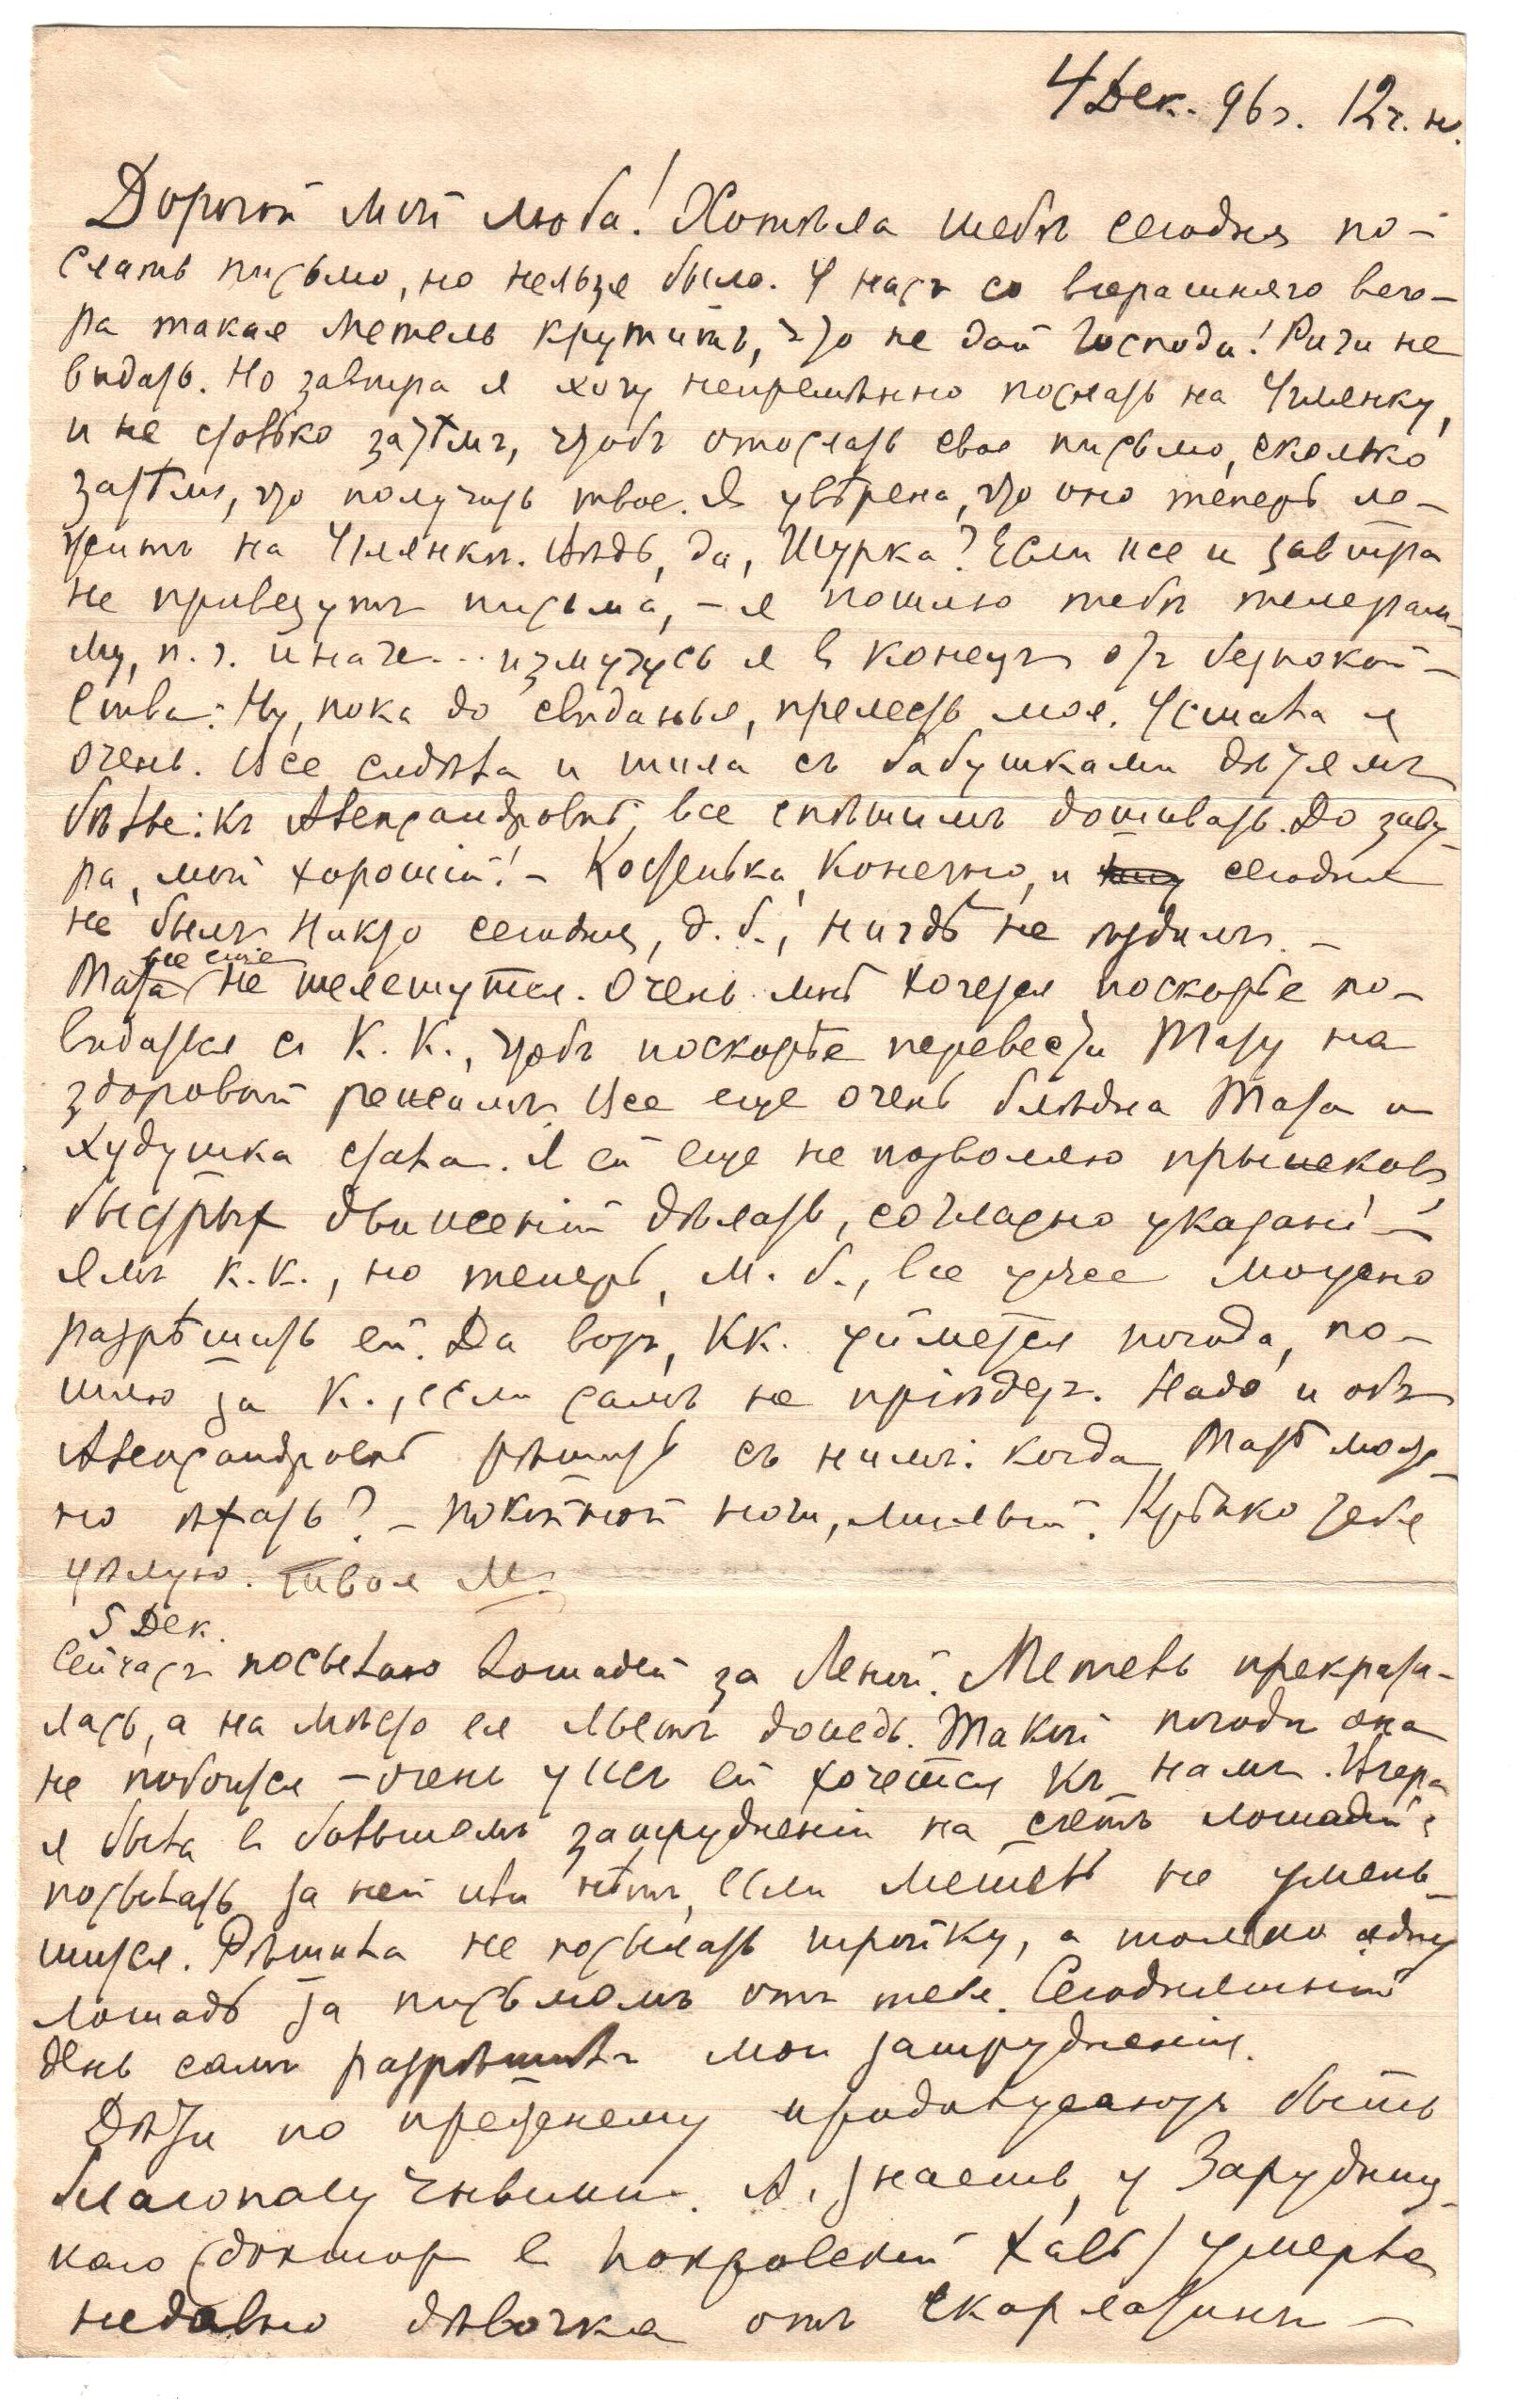 4 Дек. 96 г. 12 ч. н.
Дорогой мой люба! Хотѣла тебѣ сегодня по-
слать письмо, но нельзя было. У насъ со вчерашняго вече-
ра такая метель крутитъ, что не дай Господи! Риги не
видать. Но завтра я хочу непремѣнно послать на Углянку,
и не столько затѣмъ, чтобъ отослать свое письмо, сколько
затѣмъ, что получить твое. Я увѣрена, что оно теперь ле-
житъ на Углянкѣ. Вѣдь, да, Шурка? Если же и завтра
не привезутъ письма, – я пошлю тебѣ телеграм-
му, п. ч. иначе... измучусь я въ конецъ отъ безпокой-
ства. Ну, пока до свиданья, прелесть моя. Устала я
очень. Все сидѣла и шила съ бабушками дѣтямъ
бѣлье: къ Александровкѣ все спѣшимъ дошивать. До завт-
ра, мой хорошій! – Костенька, конечно, и сегодня
не былъ. Никто сегодня, д. б., нигдѣ не ѣздилъ. –
Тата все еще не шелушится. Очень мнѣ хочется поскорѣе по-
видаться съ К. К., чтобъ поскорѣе перевести Тату на
здоровый режимъ. Все еще очень блѣдна Тата и
худушка стала. Я ей еще не позволяю прыжковъ,
быстрыхъ движеній дѣлать, согласно указані-
ямъ К. К., но теперь, м. б., все уже можно
разрѣшить ей. Да вотъ, КК. уймется погода, по-
шлю за К., если самъ не пріѣдетъ. Надо и объ
Александровкѣ рѣшить съ нимъ: когда Татѣ мож-
но ѣхать? – Покойной ночи, милый. Крѣпко тебя
цѣлую. Твоя М.
5 Дек.
Сейчасъ посылаю лошадей за Леной. Метель прекрати-
лась, а на мѣсто ея льетъ дождь. Такой погоды она
не побоится – очень ужъ ей хочется къ намъ. Вчера
я была въ большомъ затрудненіи на счетъ лошадей:
посылать за ней или нѣтъ, если метель не умень-
шится. Рѣшила не посылать тройку, а только одну
лошадь за письмомъ отъ тебя. Сегодняшній
день самъ разрѣшилъ мои затрудненія.
Дѣти по прежнему продолжаютъ быть
благополучными. А, знаешь, у Заруднец-
каго (докторъ въ Покровской Хавѣ) умерла
недавно дѣвочка отъ скарлатины –